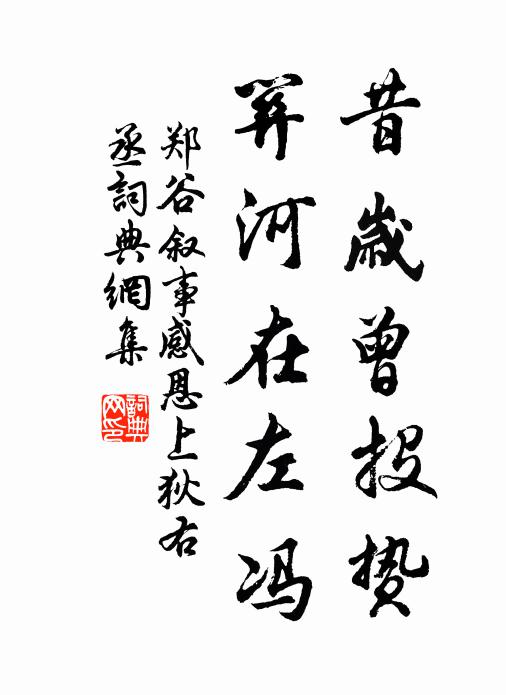 昔歲曾投贽
关河在左冯
郑谷叙事感恩上狄右
丞詞典網集
詞典
网印